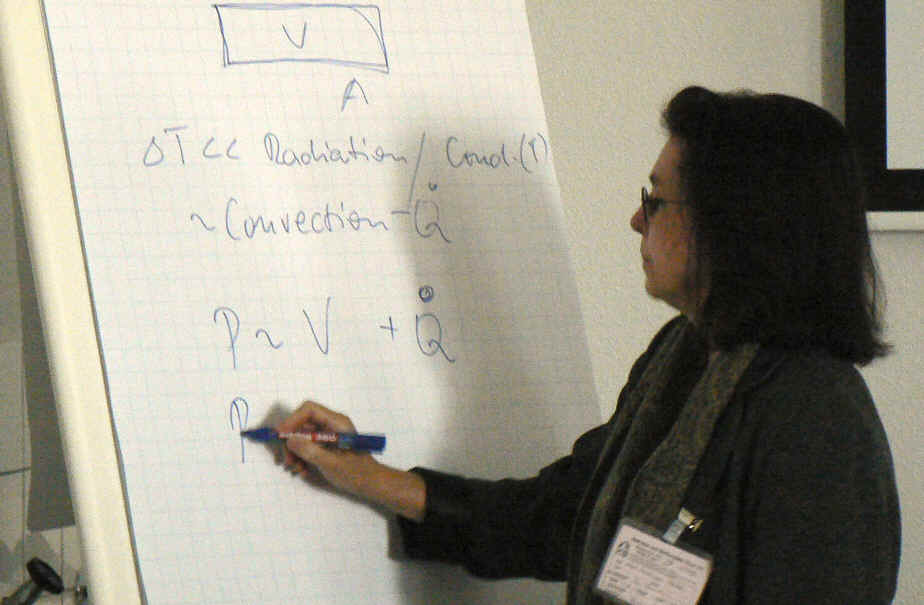 V
A
ΔT << Radiation / Cond.(T)
~ Convection - Q̇
P ~ V + Q̇
P